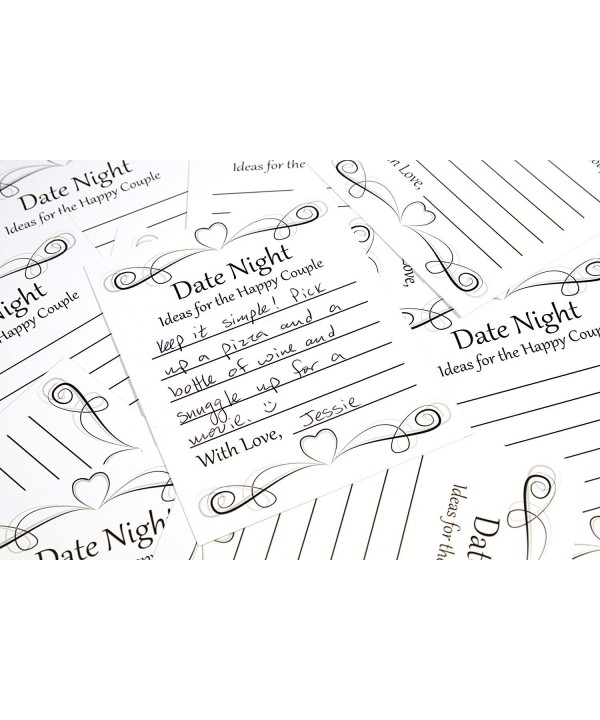 Date Night
Ideas for the Happy Couple
Ideas for the
With Love,
Night
Happy Couple
Date Night
Ideas for the Happy Couple
keep it simple! Pick
up a pizza and a
bottle of wine and
snuggle up for a
movie. ☺
With Love, Jessie
Love,
Date Night
Ideas for the Happy Couple
Date Night
Ideas for the